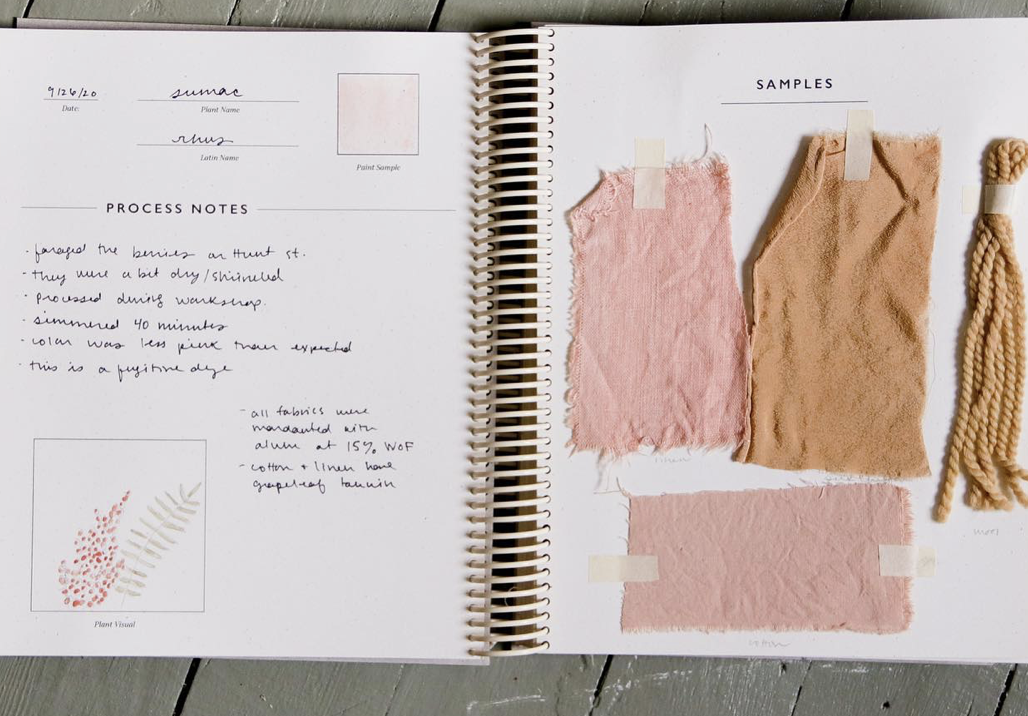 9/26/20
Date:
sumac
Plant Name
rhus
Latin Name
Paint Sample
PROCESS NOTES
· foraged the berries on Hunt st.
· they were a bit dry/shriveled
· processed during workshop.
· simmered 40 minutes
· color was less pink than expected
· this is a fugitive dye
- all fabrics were
mordanted with
alum at 15% WOF
- cotton + linen have
grapeleaf tannin
Plant Visual
SAMPLES
linen
wool
cotton